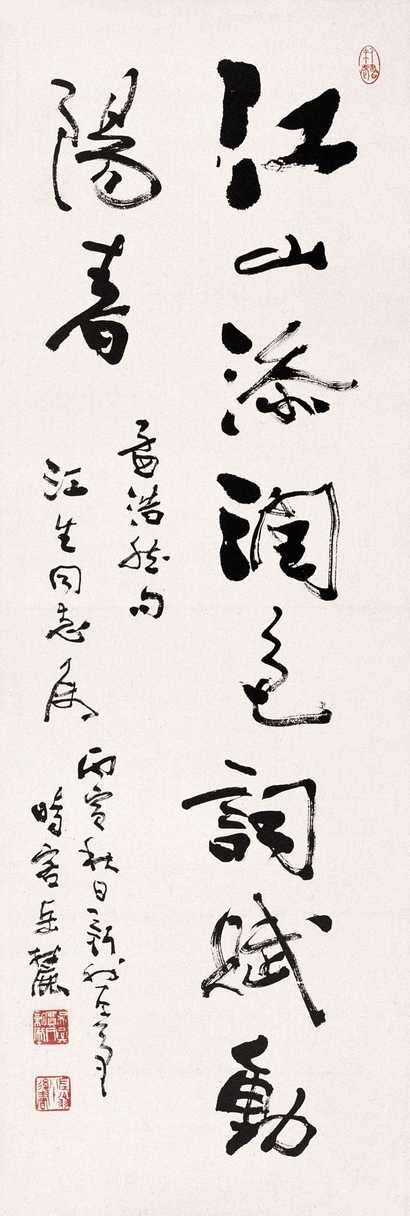 江山添潤色詞賦動
陽春
孟浩然句
江生同志属
丙寅秋日新我左筆
時客岳麓